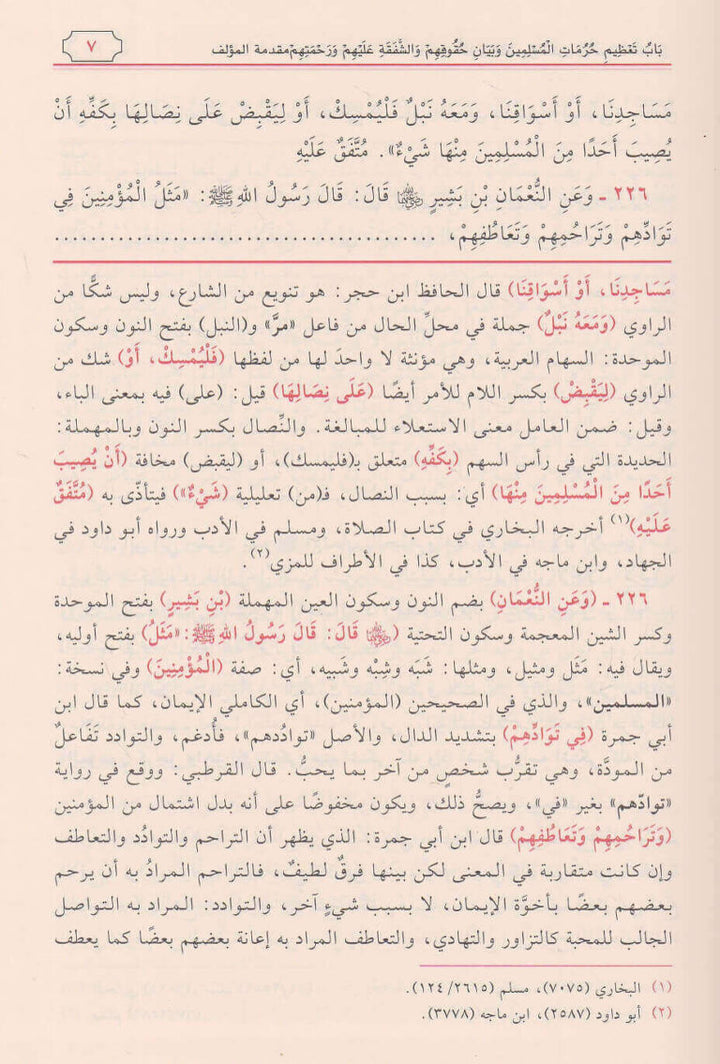 بَابُ تَعْظِيمِ حُرُمَاتِ الْمُسْلِمِينَ وَبَيَانِ حُقُوقِهِمْ وَالشَّفَقَةِ عَلَيْهِمْ وَرَحْمَتِهِمْ مقدمة المؤلف ٧
مَسَاجِدِنَا، أَوْ أَسْوَاقِنَا، وَمَعَهُ نَبْلٌ فَلْيُمْسِكْ، أَوْ لِيَقْبِضْ عَلَى نِصَالِهَا بِكَفِّهِ أَنْ
يُصِيبَ أَحَدًا مِنَ الْمُسْلِمِينَ مِنْهَا شَيْءٌ». مُتَّفَقٌ عَلَيْهِ
٢٢٦ ـ وَعَنِ النُّعْمَانِ بْنِ بَشِيرٍ رضي الله عنهما قَالَ: قَالَ رَسُولُ اللهِ ﷺ: «مَثَلُ الْمُؤْمِنِينَ فِي
تَوَادِّهِمْ وَتَرَاحُمِهِمْ وَتَعَاطُفِهِمْ، .......................................
مَسَاجِدِنَا، أَوْ أَسْوَاقِنَا) قال الحافظ ابن حجر: هو تنويع من الشارع، وليس شكًّا من
الراوي (وَمَعَهُ نَبْلٌ) جملة في محلِّ الحال من فاعل «مرَّ» و(النبل) بفتح النون وسكون
الموحدة: السهام العربية، وهي مؤنثة لا واحدَ لها من لفظها (فَلْيُمْسِكْ، أَوْ) شك من
الراوي (لِيَقْبِضْ) بكسر اللام للأمر أيضًا (عَلَى نِصَالِهَا) قيل: (على) فيه بمعنى الباء،
وقيل: ضمن العامل معنى الاستعلاء للمبالغة. والنِّصال بكسر النون وبالمهملة:
الحديدة التي في رأس السهم (بِكَفِّهِ) متعلق بـ(فليمسك)، أو (ليقبض) مخافة (أَنْ يُصِيبَ
أَحَدًا مِنَ الْمُسْلِمِينَ مِنْهَا) أي: بسبب النصال، فـ(من) تعليلية (شَيْءٌ») فيتأذّى به (مُتَّفَقٌ
عَلَيْهِ)(١) أخرجه البخاري في كتاب الصلاة، ومسلم في الأدب ورواه أبو داود في
الجهاد، وابن ماجه في الأدب، كذا في الأطراف للمزي(٢).
٢٢٦ ـ (وَعَنِ النُّعْمَانِ) بضم النون وسكون العين المهملة (بْنِ بَشِيرٍ) بفتح الموحدة
وكسر الشين المعجمة وسكون التحتية (رضي الله عنهما قَالَ: قَالَ رَسُولُ اللهِ ﷺ: «مَثَلُ) بفتح أوليه،
ويقال فيه: مَثَل ومثيل، ومثلها: شَبَه وشِبْه وشَبيه، أي: صفة (الْمُؤْمِنِينَ) وفي نسخة:
«المسلمين»، والذي في الصحيحين (المؤمنين)، أي الكاملي الإيمان، كما قال ابن
أبي جمرة (فِي تَوَادِّهِمْ) بتشديد الدال، والأصل «تواددهم»، فأُدغم، والتوادد تَفَاعلٌ
من المودَّة، وهي تقرُّب شخصٍ من آخر بما يحبُّ. قال القرطبي: ووقع في رواية
«توادّهم» بغير «في»، ويصحُّ ذلك، ويكون مخفوضًا على أنه بدل اشتمال من المؤمنين
(وَتَرَاحُمِهِمْ وَتَعَاطُفِهِمْ) قال ابن أبي جمرة: الذي يظهر أن التراحم والتوادُد والتعاطف
وإن كانت متقاربة في المعنى لكن بينها فرقٌ لطيفٌ، فالتراحم المرادُ به أن يرحم
بعضهم بعضًا بأخوَّة الإيمان، لا بسبب شيءٍ آخر، والتوادد: المراد به التواصل
الجالب للمحبة كالتزاور والتهادي، والتعاطف المراد به إعانة بعضهم بعضًا كما يعطف
(١) البخاري (٧٠٧٥)، مسلم (١٢٤/٢٦١٥).
(٢) أبو داود (٢٥٨٧)، ابن ماجه (٣٧٧٨).